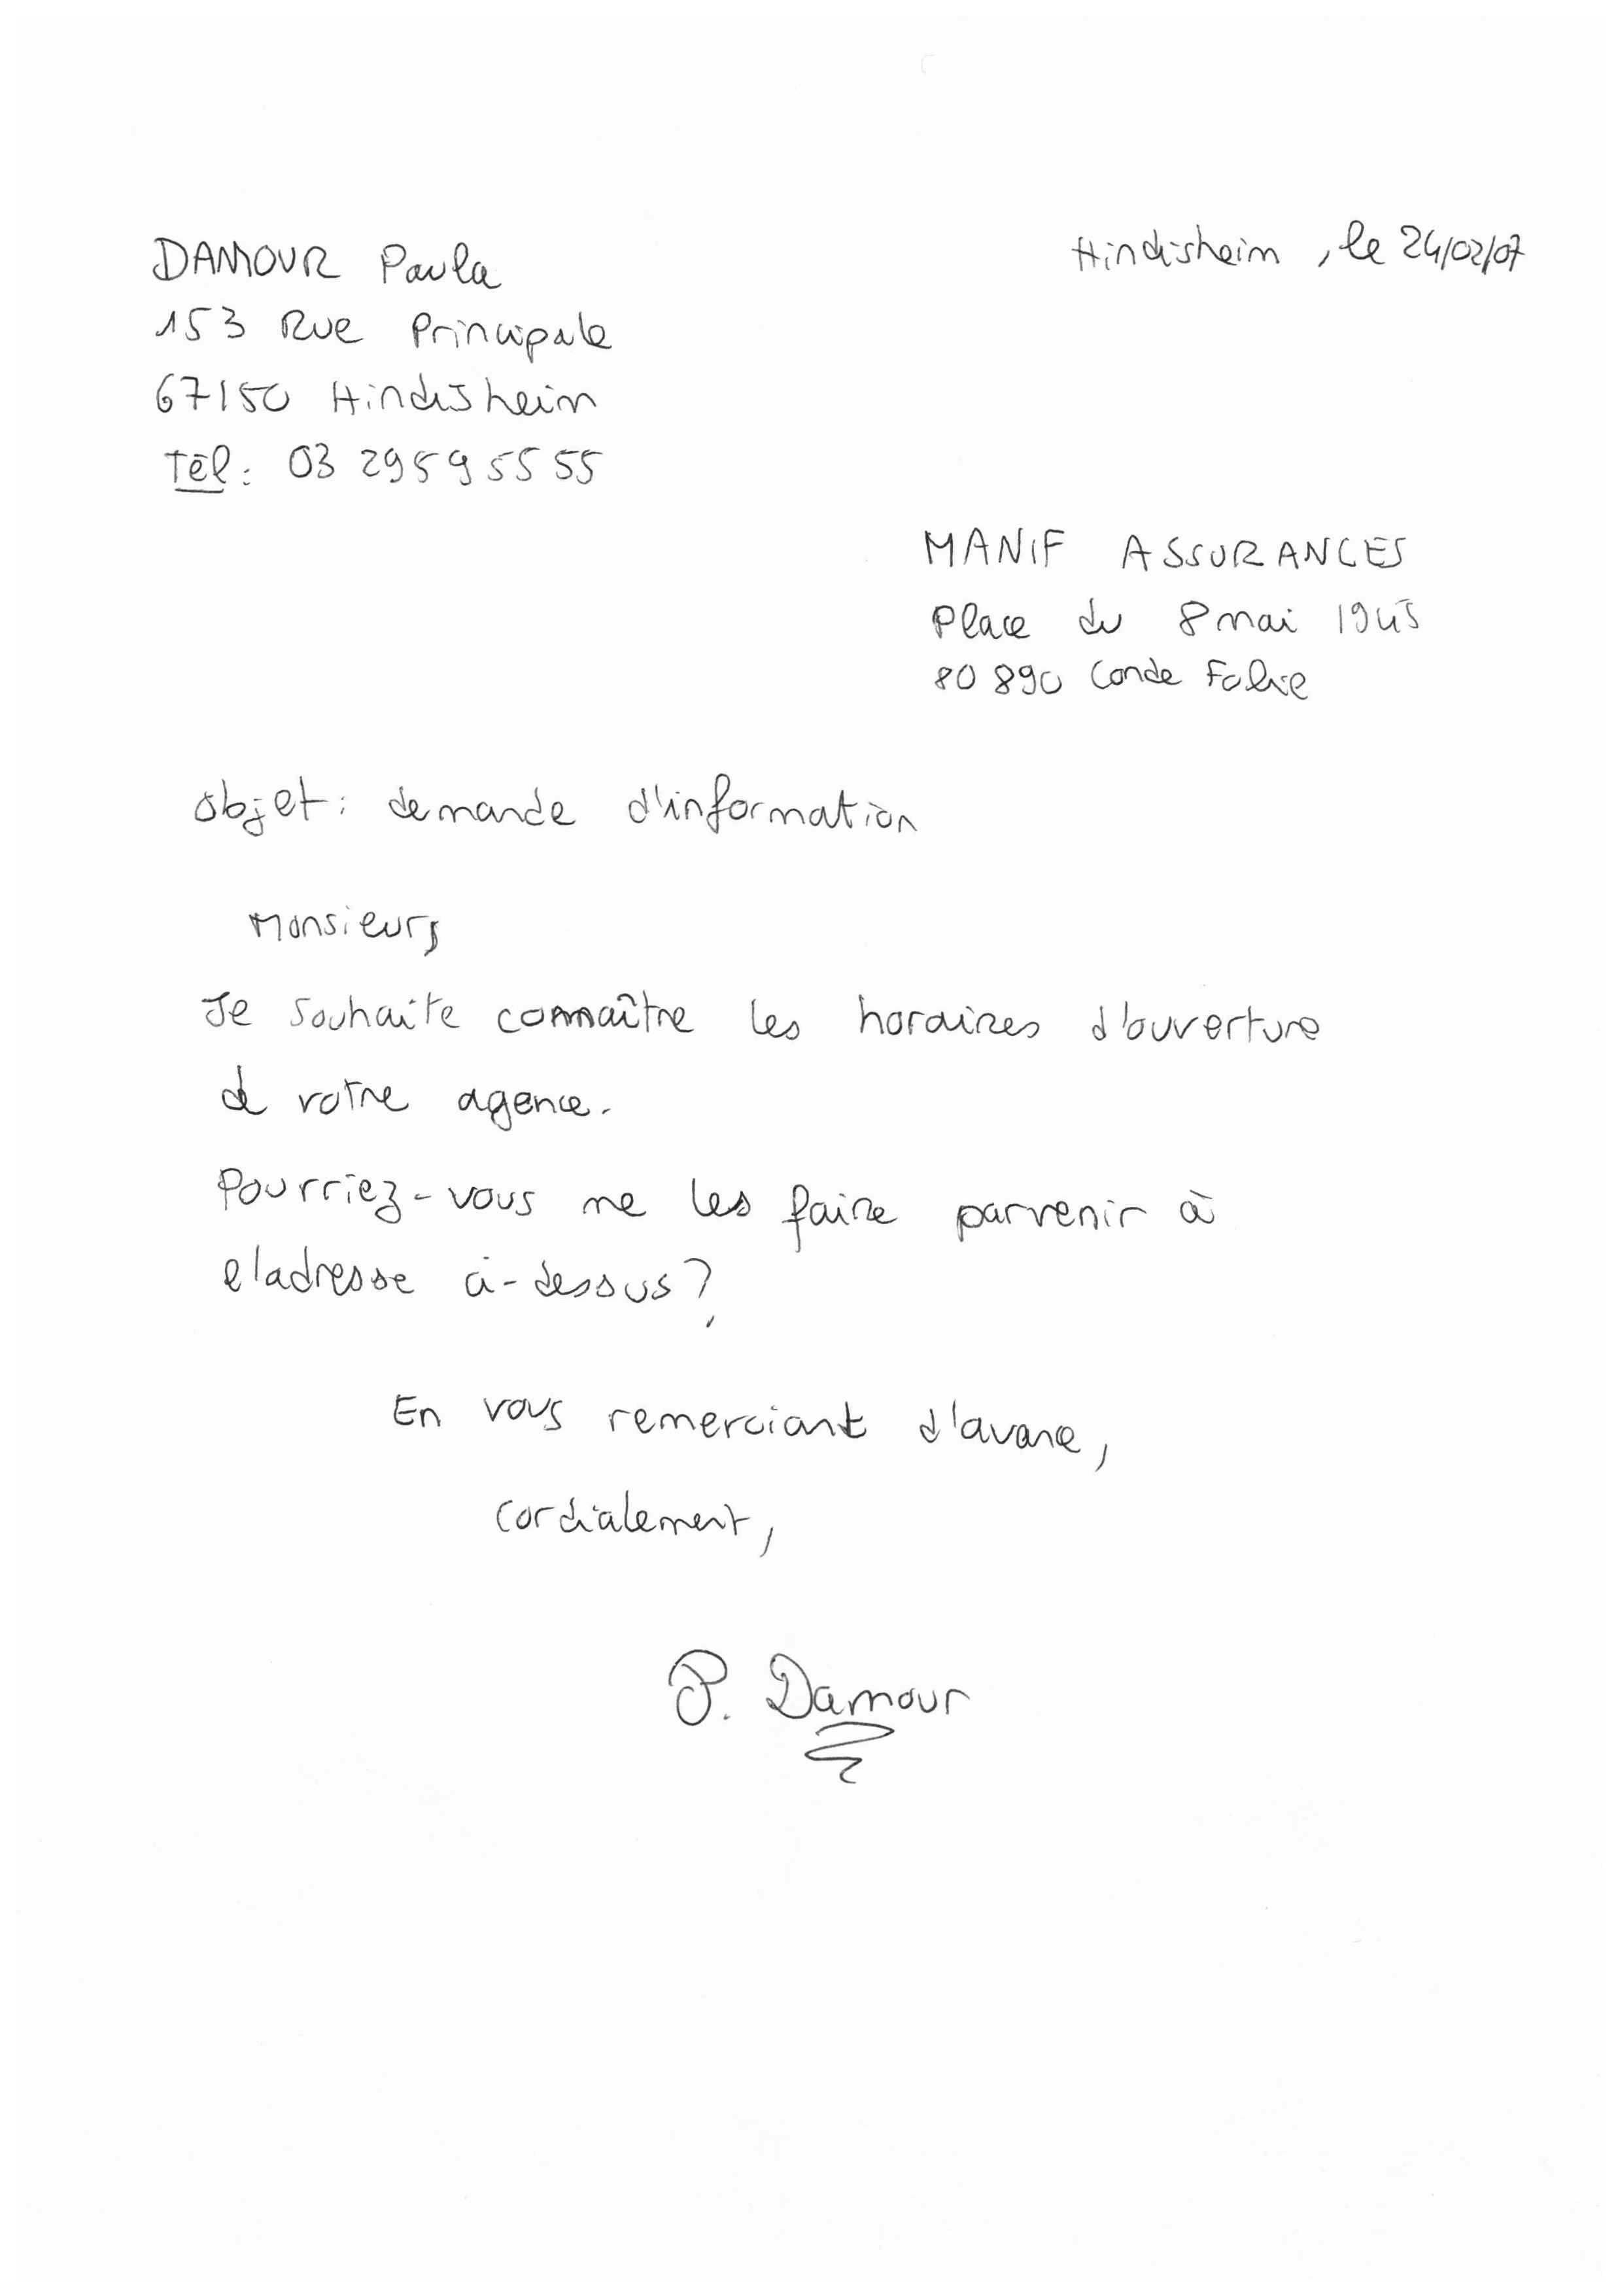 DAMOUR Paula
Hindisheim, le 24/02/07
153 Rue Principale
67150 Hindisheim
Tél: 03 29 59 55 55
MANIF ASSURANCES
Place du 8 mai 1945
80 890 Conde Folie
Objet: demande d'information
Monsieur,
Je souhaite connaître les horaires d'ouverture
de votre agence.
Pourriez-vous me les faire parvenir à
l'adresse ci-dessus?
En vous remerciant d'avance,
Cordialement,
P. Damour